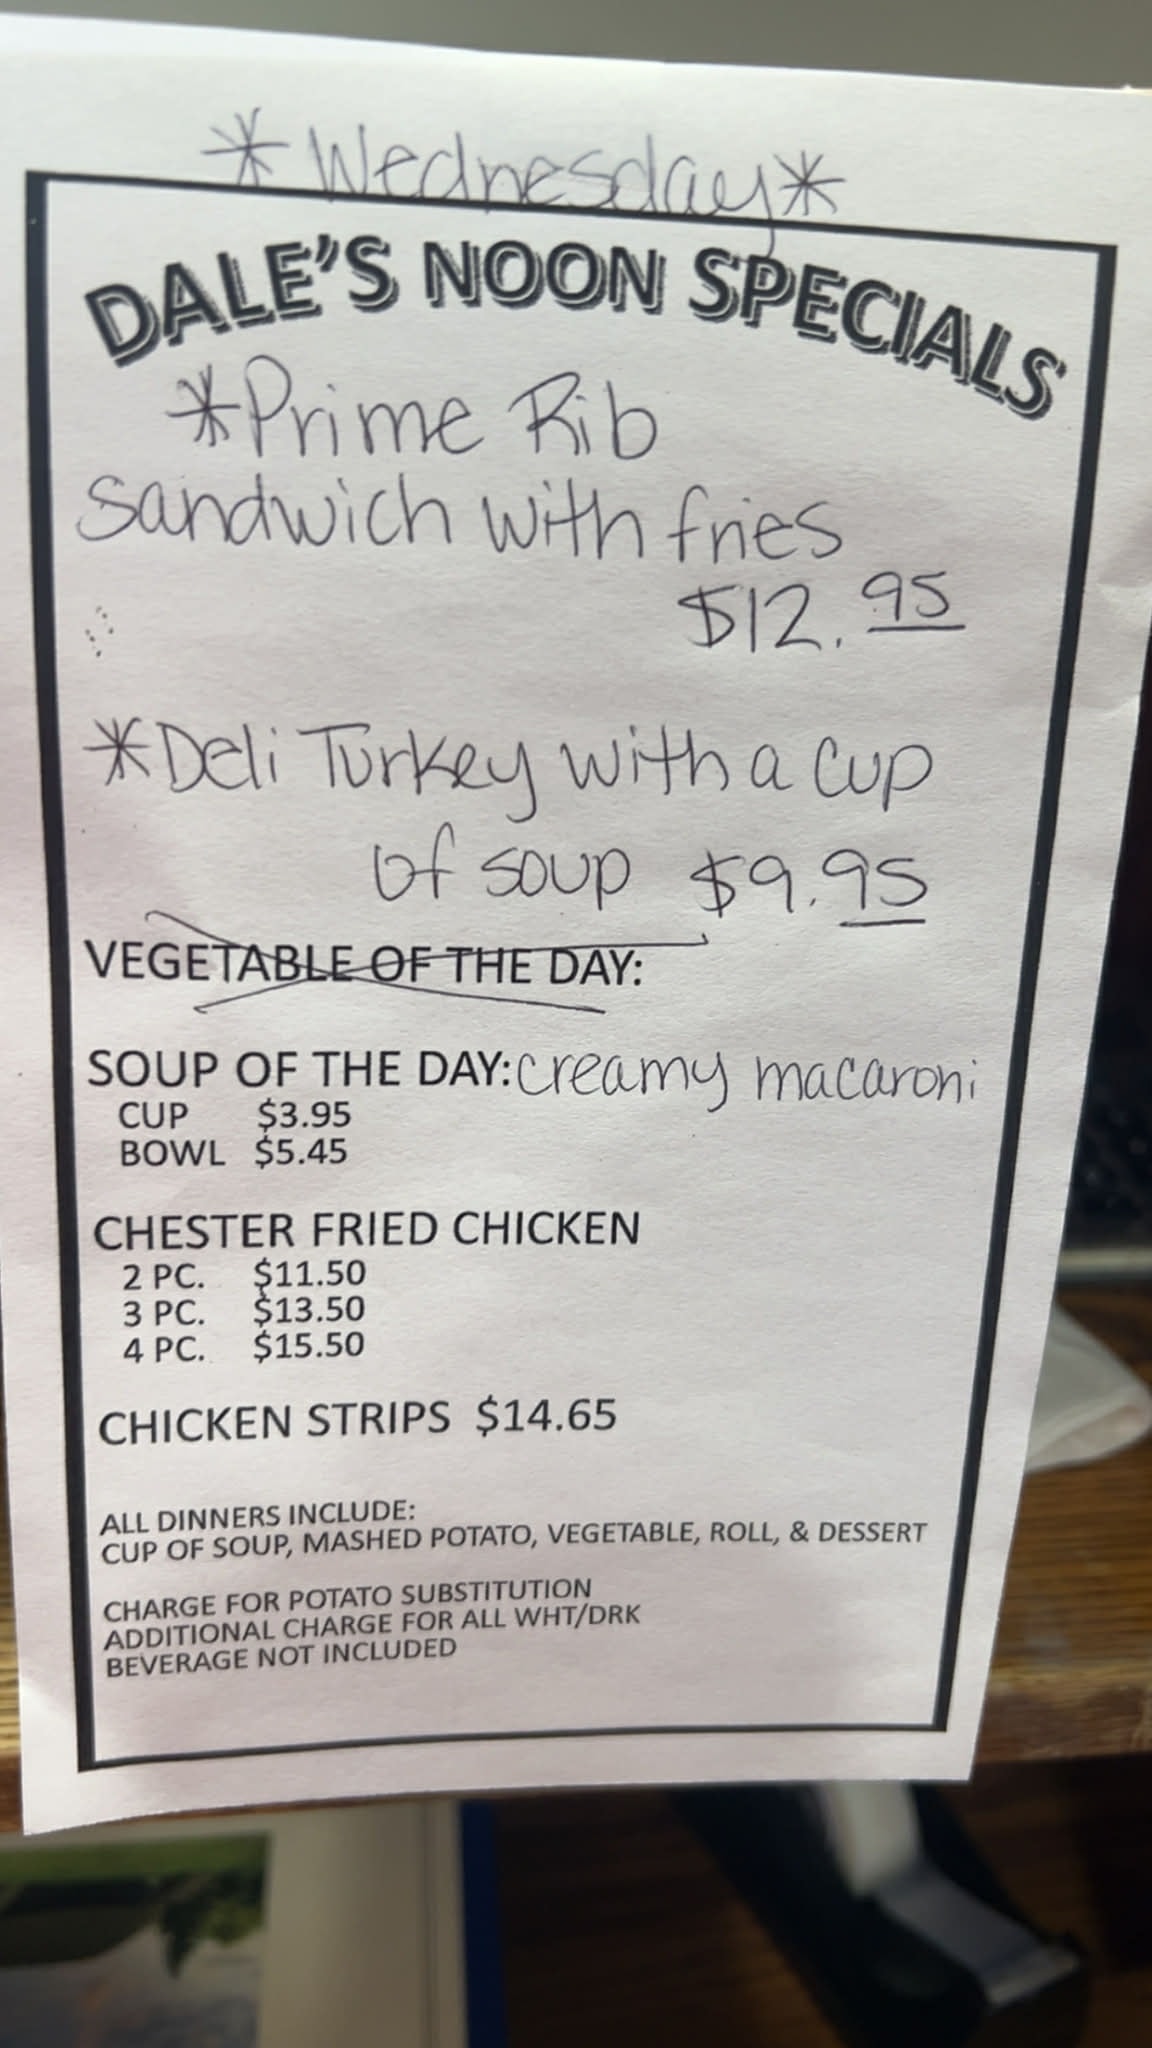 *Wednesday*
DALE'S NOON SPECIALS
*Prime Rib
Sandwich with fries
$12.95
*Deli Turkey with a cup
of soup $9.95
VEGETABLE OF THE DAY:
SOUP OF THE DAY: creamy macaroni
CUP $3.95
BOWL $5.45
CHESTER FRIED CHICKEN
2 PC. $11.50
3 PC. $13.50
4 PC. $15.50
CHICKEN STRIPS $14.65
ALL DINNERS INCLUDE:
CUP OF SOUP, MASHED POTATO, VEGETABLE, ROLL, & DESSERT
CHARGE FOR POTATO SUBSTITUTION
ADDITIONAL CHARGE FOR ALL WHT/DRK
BEVERAGE NOT INCLUDED